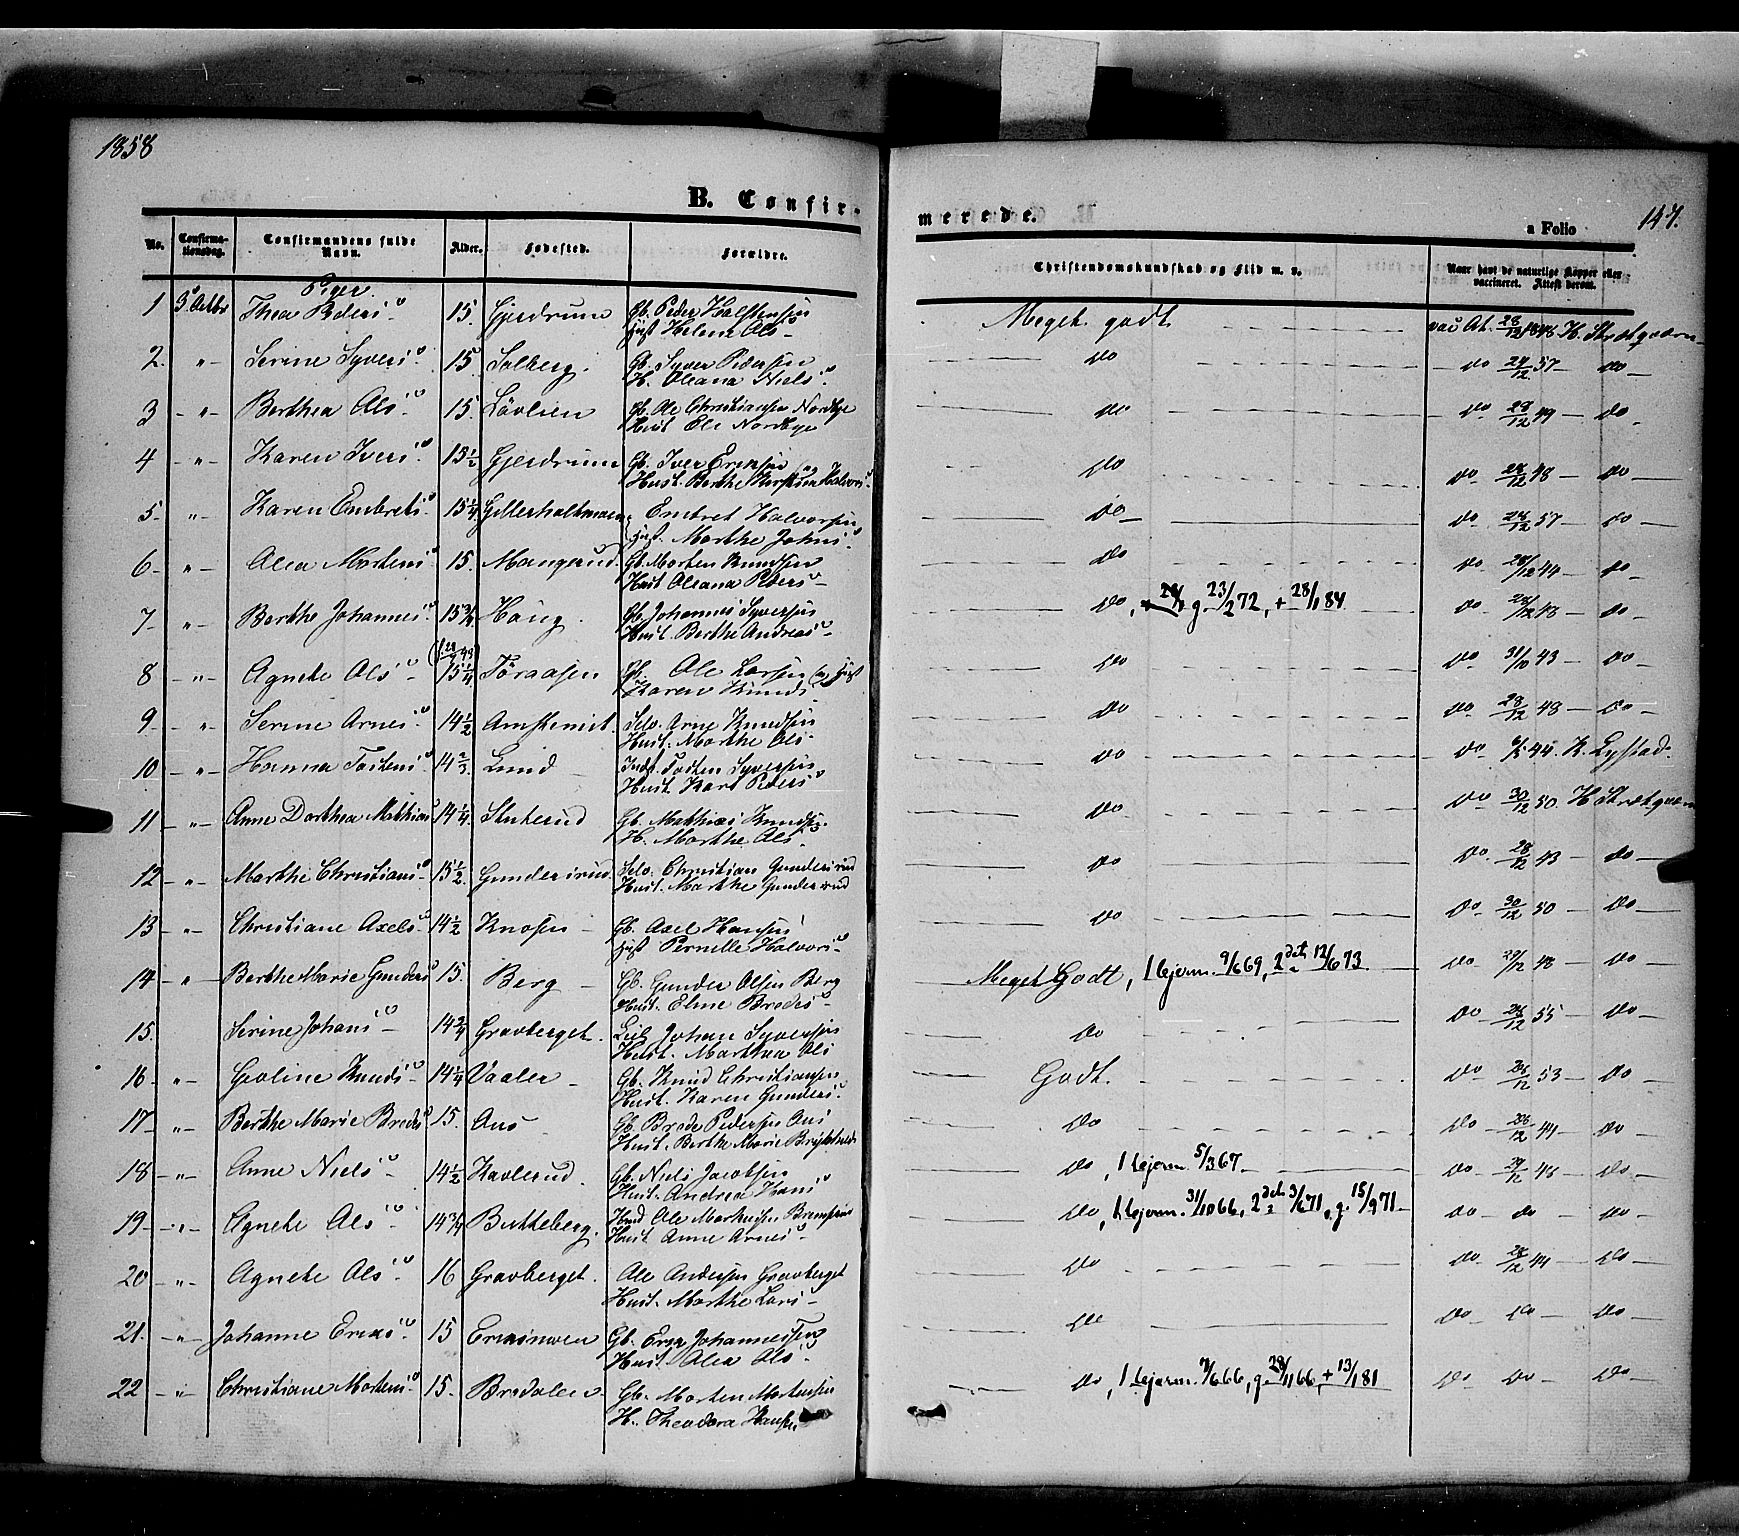 1858
B. Confir-
merede.
147.
a Folio
No. Confirma-tionsdag. Confirmandens fulde Navn. Alder. Fødested. Forældre. Christendomskundskab og Flid m. v. Naar havt de naturlige Kopper eller vaccineret. Attest derom.
Piger.
1 3 Octbr Thea Peders 15. Gjerdrum Gb. Peder Halstensen Meget godt vac At. 28/12 1848 K.
Hust Helene Ols
2. " Serine Syvers 15. Solberg. Gb. Syver Pedersen do do 24/12 57 do
H. Oleana Niels
3 " Berthea Ols 15. Lövlien Gb. Ole Christiansen Nordbye do do 28/12 49 do
Hust Eli Nordbye
4 " Karen Ivers 15 1/2 Gjerdrum Gb. Iver Eriksen do do 28/12 48 do
Hust. Berthe Kirstine Halvors
5 " Karen Embrets 15 1/4 Gillerholtmoen Embret Halvorsen do do 28/12 57 do
Hust. Marthe Johns
6 " Olea Mortens 15. Mangerud Gb. Morten Knudsen do do 28/12 44 do
Hust Oleana Peders
7 " Berthe Johannes 15 3/4 Haug. Gb. Johannes Syversen do, g. 23/2 72, + 28/1 84 do 28/12 48 do
Hust. Berthe Andreas
8 " Agnete Ols 15 1/4 Töraasen Gb. Ole Larsen og Hust do do 31/10 43 do
Karen Knuds
9 " Serine Arnes 14 1/2 Selv. Arne Knudsen do do 28/12 48 do
Hust. Marthe Ols
10 " Hanna Tostens 14 2/3 Lund Inds. Tosten Syversen do do 6/5 44. K. Lystad.
Hust. Kari Peders
11 " Anne Dorthea Mathias 14 1/4 Stuterud Gb. Mathias Knudsen do do 30/12 50 K.
H. Marthe Ols
12 " Marthe Christians 15 1/2 Gundersrud Selv. Christian Gundersrud do do 28/12 43 do
Hust. Marthe Gundersrud
13 " Christiane Axels 14 1/2 Knosen Gb. Axel Hansen do do 30/12 50 do
Hust Pernille Halvors
14 " Berthe Marie Gunders 15. Berg Gb. Gunder Olsen Berg Meget Godt, 1 lejerm. 9/6 69, 2det 12/6 73 do 29/12 48 do
Hust. Eline Brodes
15. Serine Johans 14 3/4 Gravberget. Johan Syversen do do 28/12 55 do
Hust. Marthea Ols
16 " Goline Knuds 14 1/4 Vaaler Gb. Knud Christiansen Godt. do 28/12 53 do
Hust. Karen Gunders.
17 " Berthe Marie Brodes 15. Aus Gb. Brode Pedersen Aus do do 28/12 49 do
Hust. Berthe Marie
18 " Anne Niels 14 1/2 Kavlerud Gb. Niels Jacobsen do, 1 lejerm. 5/3 67 do 29/12 48 do
Hust. Andrea Hans
19 " Agnete Ols 14 3/4 Butteberg. Ole Markusen do, 1 lejerm. 31/10 66, 2det 3/6 71, g. 15/9 71 do do do
Hust Anne Arnes
20 " Agnete Ols 16 Gravberget. Ole Andersen Gravberget do do 28/12 49 do
Hust. Marthe Lars
21. " Johanne Ericks 15 Gb. Erik Johannesen do do do do
Hust. Olea Ols
22 " Christiane Mortens 15. Bredalen Gb. Morten Mortensen do, 1 lejerm. 7/6 66, g. 28/11 66, + 13/1 81 do do do
H. Theodora Hansen